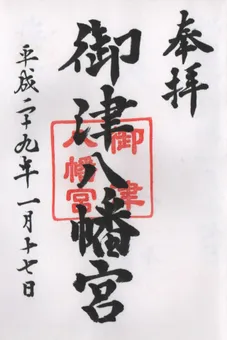 奉拝
御津八幡宮
御津
八幡宮
平成二十九年一月十七日